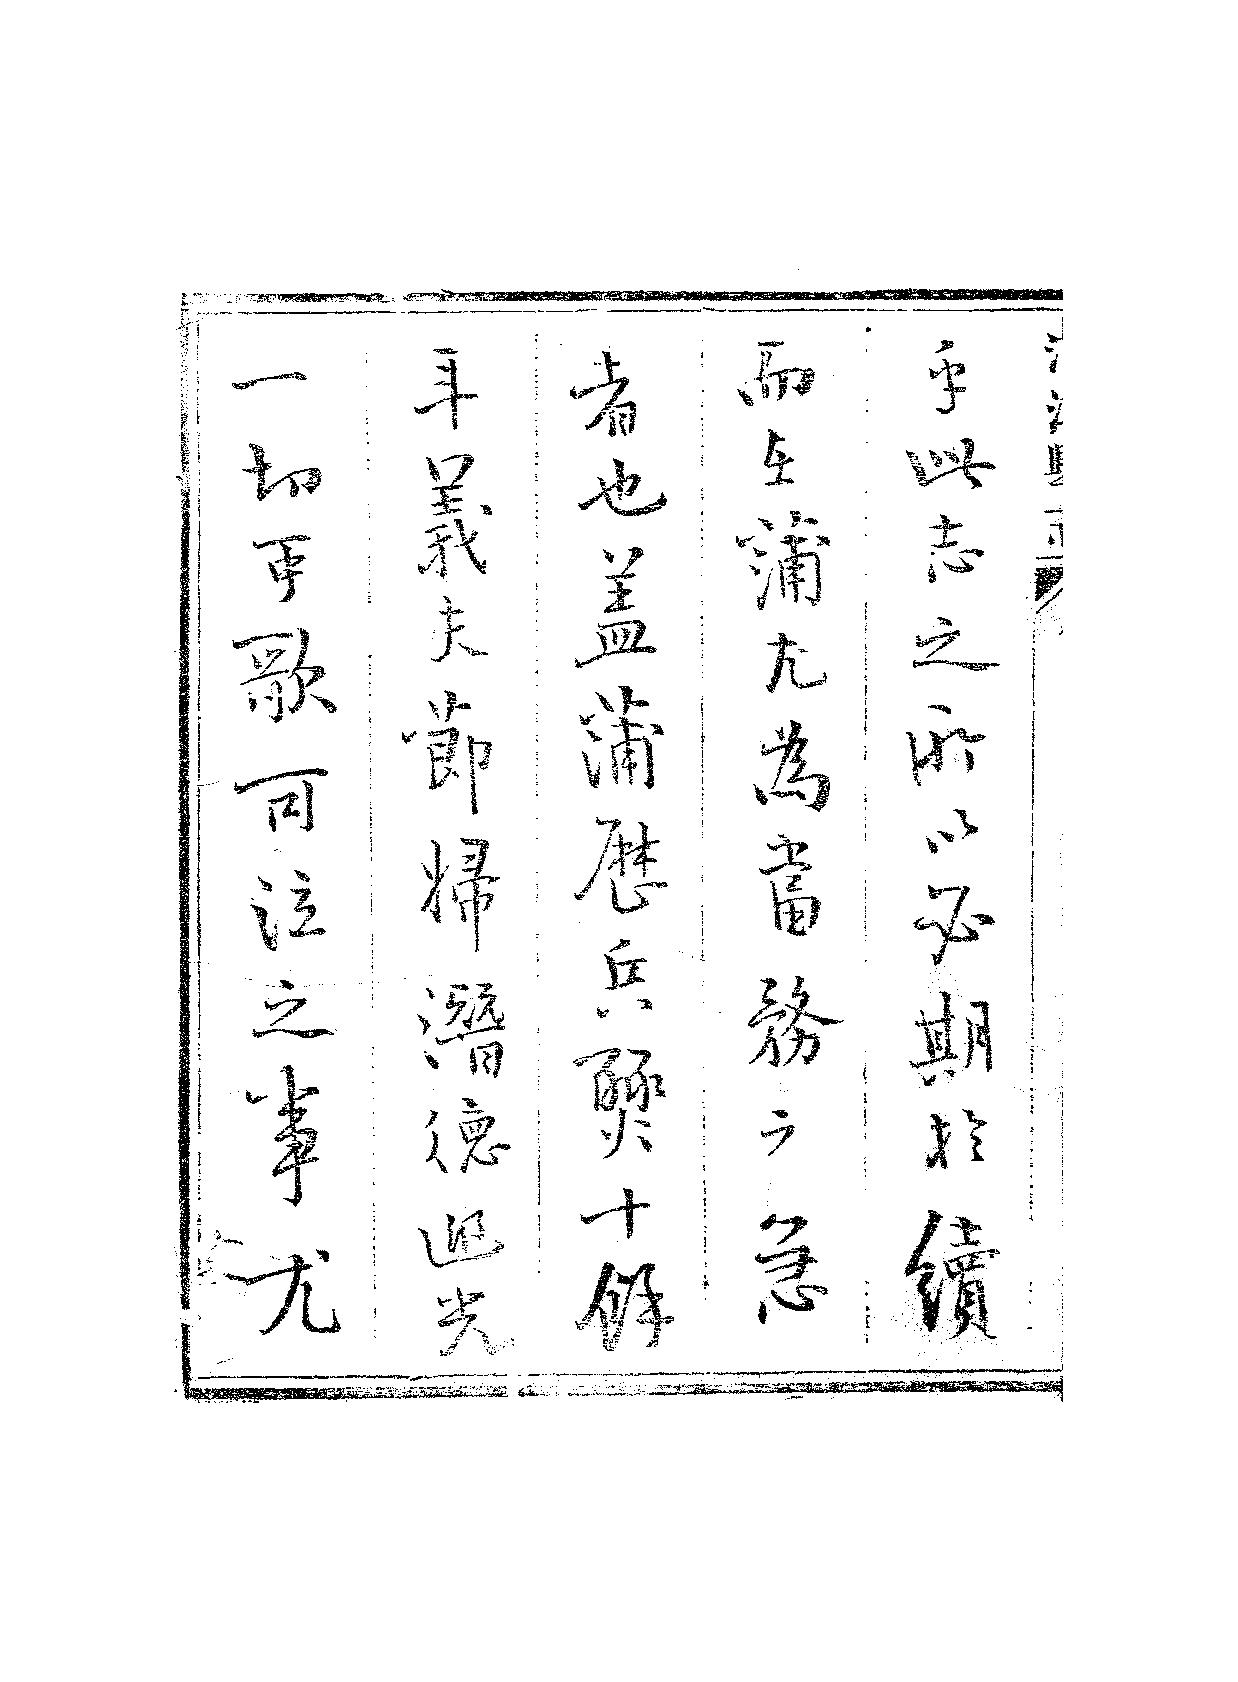 乎此志之所以必期於續
而在蒲尤為當務之急
者也盖蒲歷兵燹十餘
年義夫節婦潛德幽光
一切可歌可泣之事尤